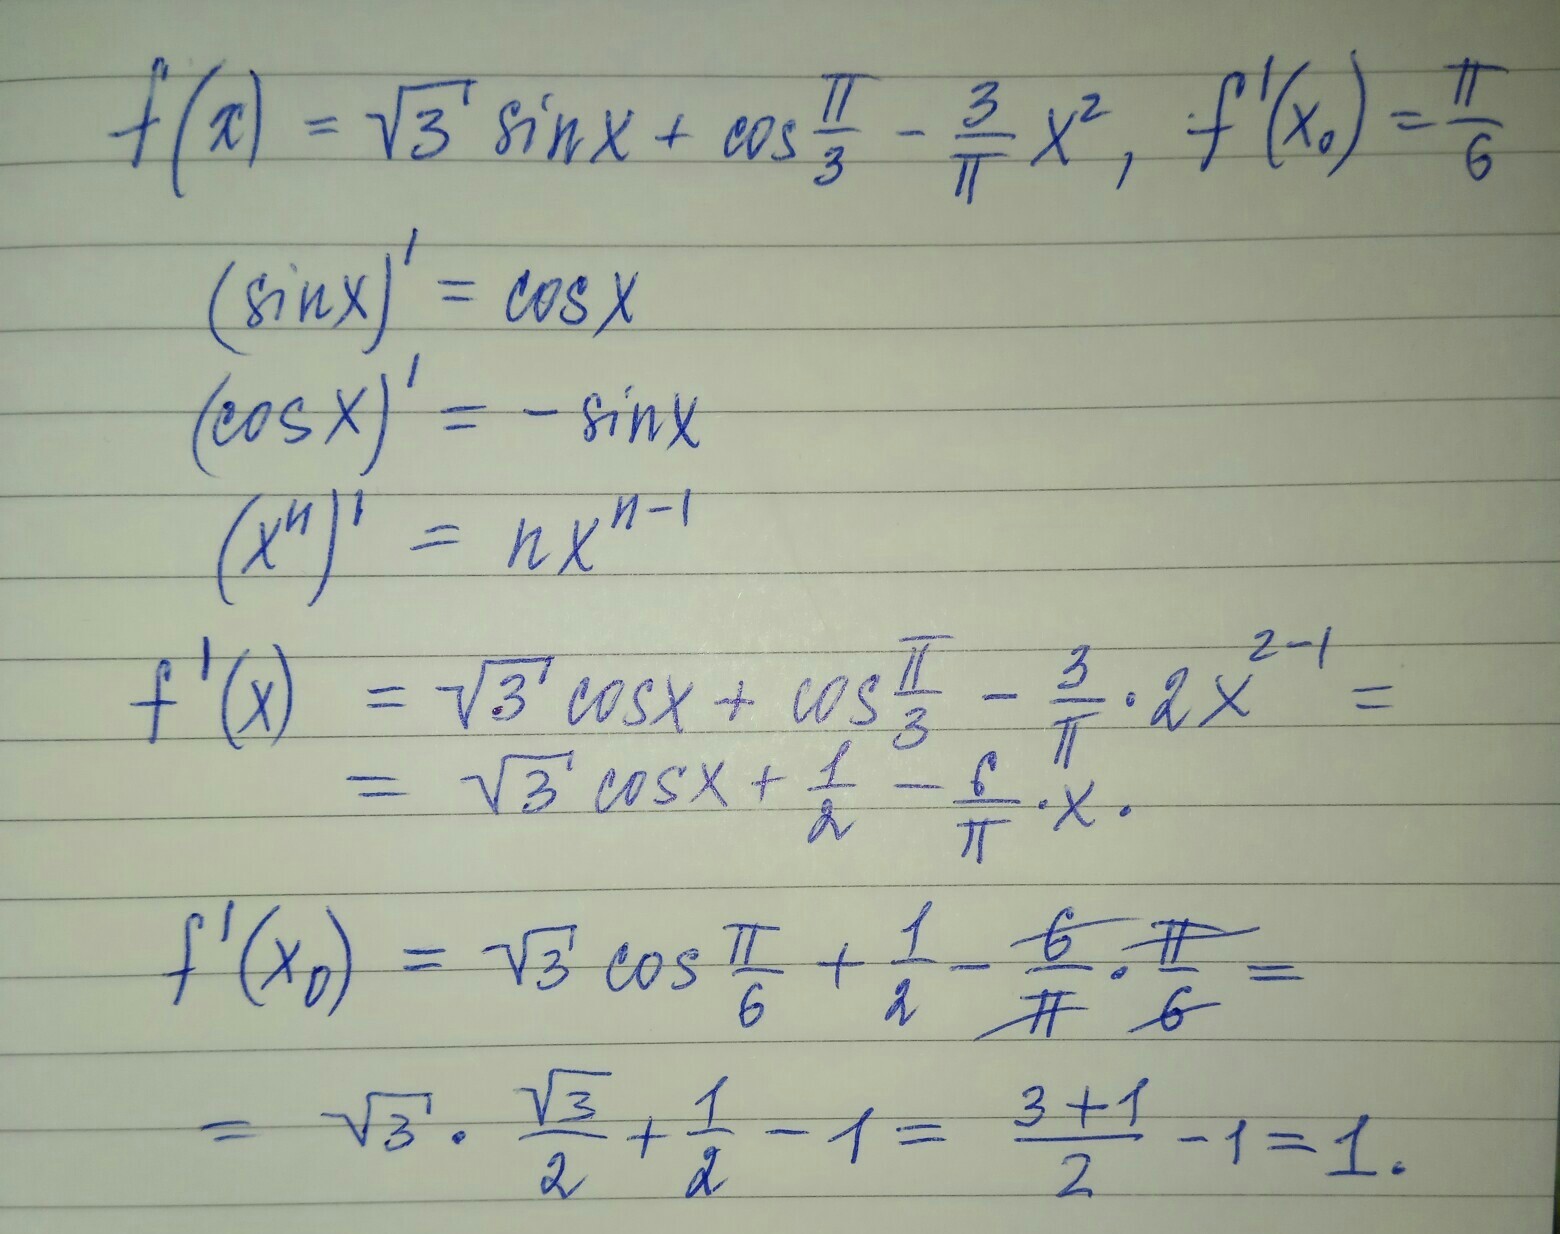 f(x) = √3 sinx + cos π/3 - 3/π x², f'(x₀) = π/6
(sinx)' = cosx
(cosx)' = - sinx
(xⁿ)' = nxⁿ⁻¹
f'(x) = √3 cosx + cos π/3 - 3/π · 2x²⁻¹ =
= √3 cosx + 1/2 - 6/π · x.
f'(x₀) = √3 cos π/6 + 1/2 - 6/π · π/6 =
= √3 · √3/2 + 1/2 - 1 = 3+1/2 - 1 = 1.